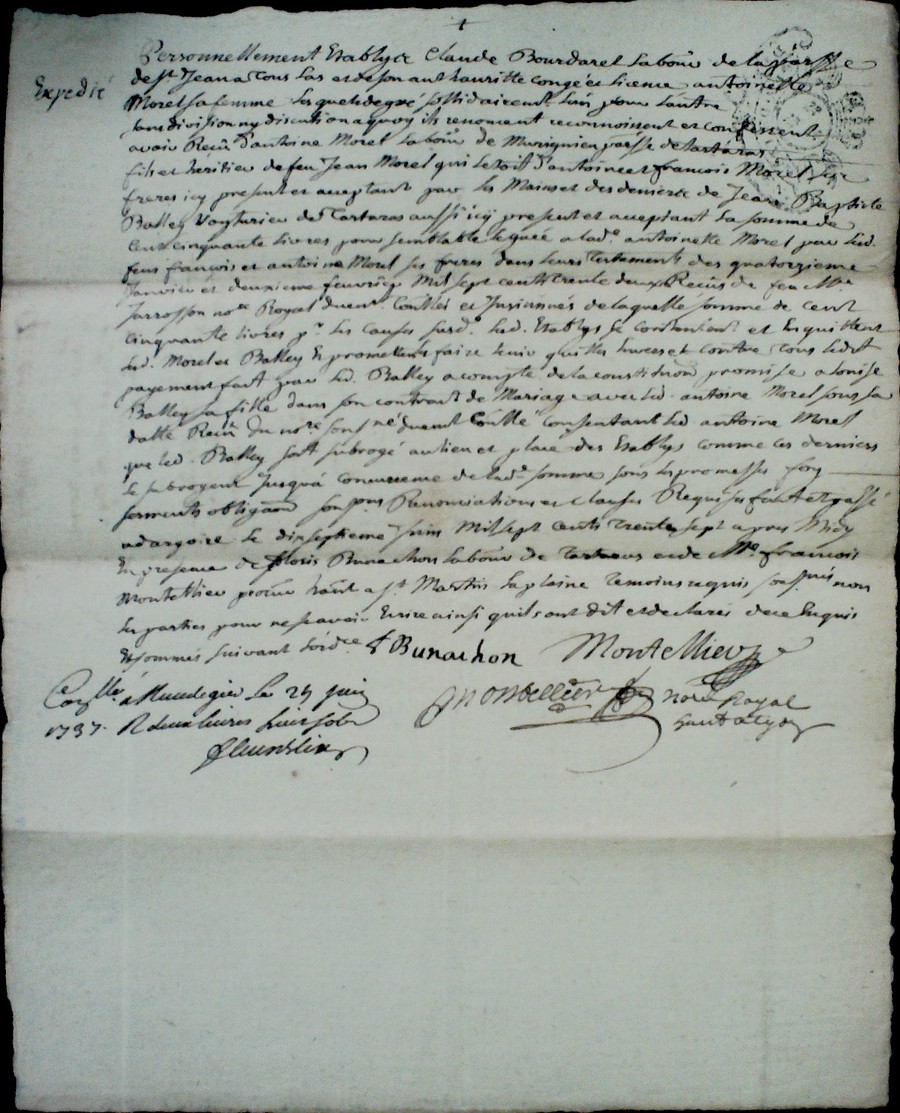 Personnellement Etablys Claude Bourdaret labour de la parsse
Expedié
de st Jean a Tous las et de son authauritte congé et licence antoinette
Morel sa femme lesquels de gré sollidairement lun pour lautre
sans division ny discution a quoy ils renoncent reconnoissent et confessent
avoir Receu d'antoine Morel labour de Murignieu passe de tartaras
fils et héritier de feu Jean Morel qui letoit d'antoine et francois Morel ses
freres icy present et acceptant par les Mains et des deniers de Jean Baptiste
Balley Voyturier de Tartaras aussi icy present et acceptant la somme de
Cent cinquante livres pour semblable leguée a lade antoinette Morel par led.
feus françois et antoine Morel ses freres dans leurs Testaments des quatorzieme
Janvier et deuxieme fevrier Mil sept cents trente deux Receus de feu Me
Jarrosson nore Royal duemt Contlés et Insinués de laquelle somme de cent
cinquante livres pr. les causes susd. led. Etablys se contentent et en quittent
led. Morel et Balley Et promettent faire tenir quittes Envers et contre tous ledit
payement fait par led. Balley a compte de la constitution promise a louise
Balley sa fille dans son contract de Mariage avec led. antoine Morel sous sa
datte Receu du nore soussné duement Contlé consentant led antoine Morel
que led. Balley soit subrogé au lieu et place des Etablys comme ces derniers
le subrogent jusqu'à concurence de lade somme sous les promesses foy
serments obligaon Renonciations et clauses Requises fait et passé
a dargoire le dixseptieme juin Mil sept cents trente sept apres Midy
En presence de floris Bunachon labour de Tartaras et de Me francois
Montellier a st Martin la plaine temoins requis soussnés non
les parties pour ne scavoir Ecrire ainsi quils ont dit et declaré de ce Enquis
Et sommés suivant lordce f Bunachon Montellier
Conllé a Rivedegier le 24 juin
Montellier nore Royal
1737. R deux livres huit sols